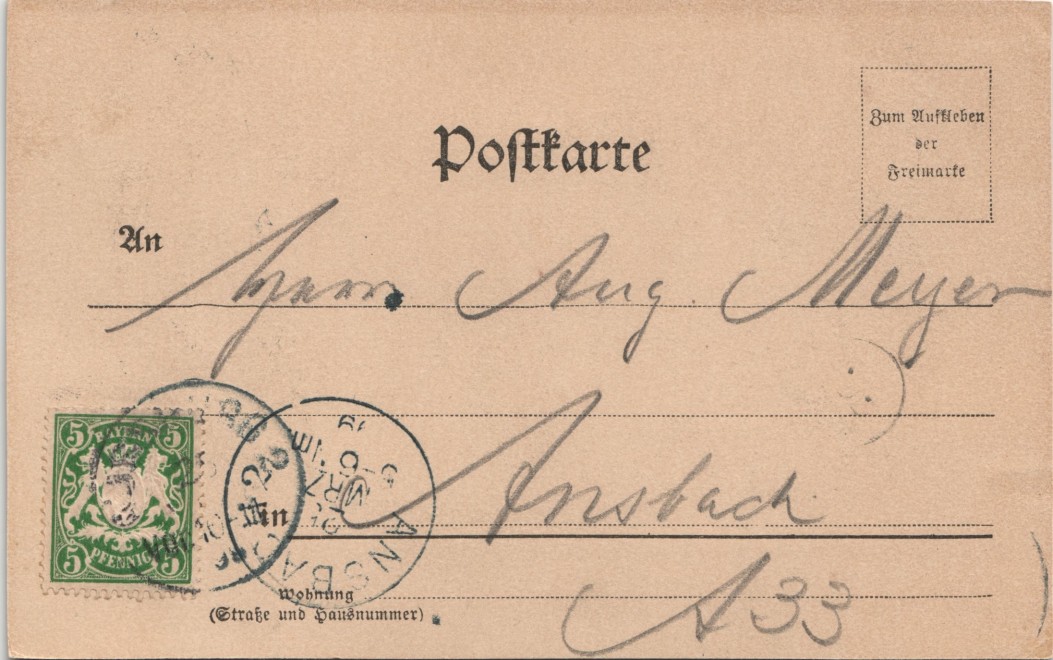 Postkarte
Zum Aufkleben
der
Freimarke
An
Herrn Aug. Meyer
5 BAYERN 5
5 PFENNIG 5
in Ansbach
ANSBA
MRZ
Wohnung
(Straße und Hausnummer)
A 33